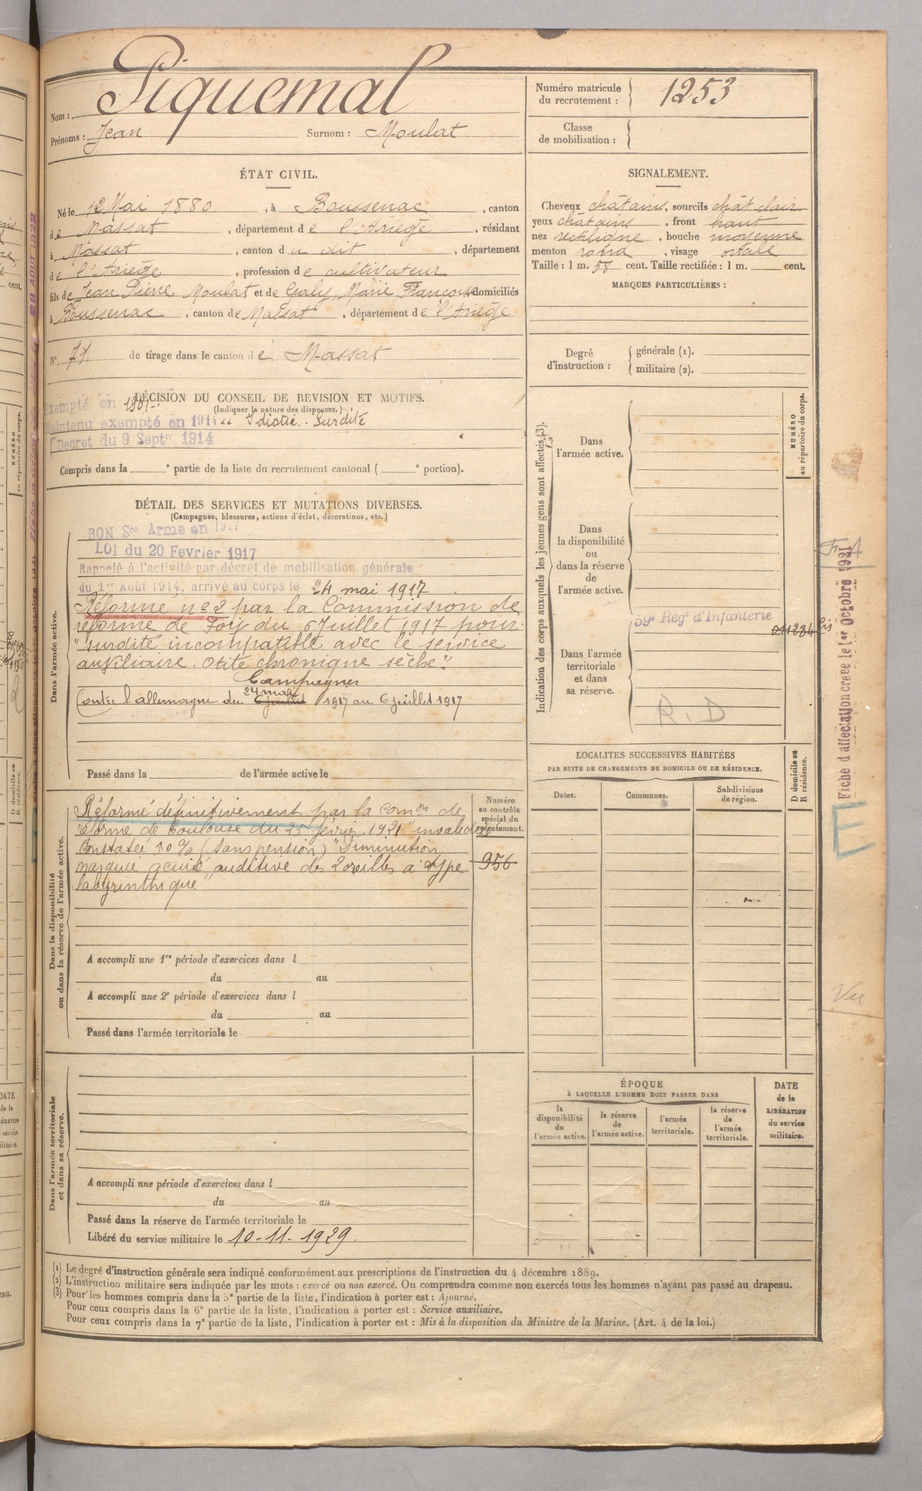 Nom : Piquemal
Prénoms : Jean Surnom : Moulat
Numéro matricule du recrutement : 1253
Classe de mobilisation :
ÉTAT CIVIL.
Né le 12 Mai 1880, à Boussenac, canton
de Massat, département de l'Ariège, résidant
à Massat, canton du dit, département
de l'Ariège, profession de cultivateur
fils de Jean Pierre Moulat et de Galy, Marie Françoise domiciliés
à Boussenac, canton de Massat, département de l'Ariège
N° 71 de tirage dans le canton de Massat
SIGNALEMENT.
Cheveux châtains, sourcils chât clair
yeux châtains, front haut
nez rectiligne, bouche moyenne
menton rond, visage ovale
Taille : 1 m. 58 cent. Taille rectifiée : 1 m. cent.
MARQUES PARTICULIÈRES :
Degré d'instruction : générale (1).
militaire (2).
DÉCISION DU CONSEIL DE REVISION ET MOTIFS.
(Indiquer la nature des dispenses.)
Exempté en 1901
Maintenu exempté en 1914 Idiotie - Surdité
Décret du 9 Septre 1914
Compris dans la e partie de la liste du recrutement cantonal ( e portion).
DÉTAIL DES SERVICES ET MUTATIONS DIVERSES.
(Campagnes, blessures, actions d'éclat, décorations, etc.)
BON Sce Armé en 1917
LOI du 20 Février 1917
Rappelé à l'activité par décret de mobilisation générale
du 1er Août 1914, arrivé au corps le 24 mai 1917
Réformé n° 2 par la Commission de
réforme de Foix du 6 Juillet 1917 pour
"surdité incompatible avec le service
auxiliaire. Otite chronique sèche"
Campagnes
24 mai
Contre l'allemagne du 6 juillet 1917 au 6 juillet 1917
Dans l'armée active.
Passé dans la de l'armée active le
Réformé définitivement par la Comon de
réforme de Toulouse du 25 février 1921 invalidité
constatée 10 % (sans pension) "Diminution
marquée acuité auditive des 2 oreilles à type
labyrinthique"
Numéro au contrôle spécial du recrutement.
956
Dans la disponibilité ou dans la réserve de l'armée active.
A accompli une 1re période d'exercices dans l
du au
A accompli une 2e période d'exercices dans l
du au
Passé dans l'armée territoriale le
Dans l'armée territoriale et dans sa réserve.
A accompli une période d'exercices dans l
du au
Passé dans la réserve de l'armée territoriale le
Libéré du service militaire le 10-11-1929.
Indication des corps auxquels les jeunes gens sont affectés (3).
NUMÉRO au répertoire du corps.
Dans l'armée active.
Dans la disponibilité ou dans la réserve de l'armée active.
59e Régt d'Infanterie
Dans l'armée territoriale et dans sa réserve.
R.D
LOCALITÉS SUCCESSIVES HABITÉES
PAR SUITE DE CHANGEMENTS DE DOMICILE OU DE RÉSIDENCE.
Dates. Communes. Subdivisions de région.
D domicile ou R résidence.
ÉPOQUE
À LAQUELLE L'HOMME DOIT PASSER DANS
la disponibilité de l'armée active.
la réserve de l'armée active.
l'armée territoriale.
la réserve de l'armée territoriale.
DATE de la LIBÉRATION du service militaire.
Fiche d'affectation créée le 1er Octobre 1921
E
Vu
(1) Le degré d'instruction générale sera indiqué conformément aux prescriptions de l'instruction du 4 décembre 1889.
(2) L'instruction militaire sera indiquée par les mots : exercé ou non exercé. On comprendra comme non exercés tous les hommes n'ayant pas passé au drapeau.
(3) Pour les hommes compris dans la 5e partie de la liste, l'indication à porter est : Ajourné.
Pour ceux compris dans la 6e partie de la liste, l'indication à porter est : Service auxiliaire.
Pour ceux compris dans la 7e partie de la liste, l'indication à porter est : Mis à la disposition du Ministre de la Marine. (Art. 4 de la loi.)